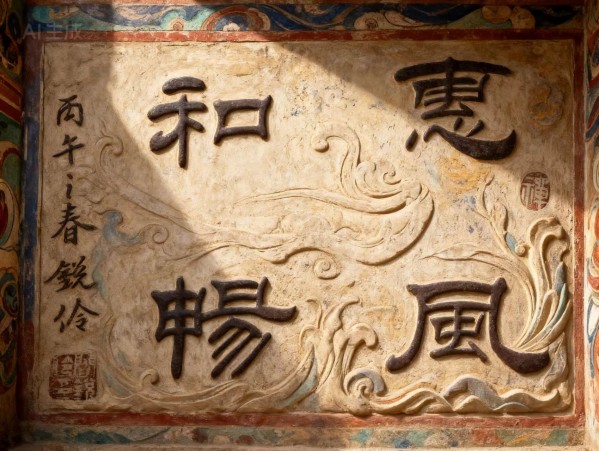 AI生成
惠風
和暢
丙午之春銳伶